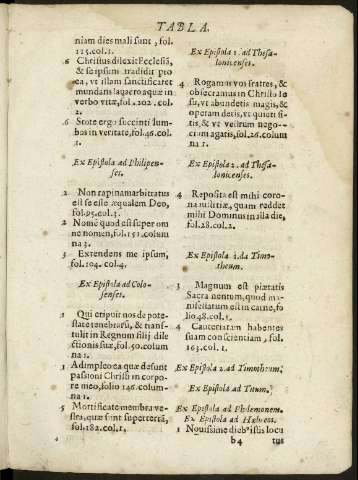 TABLA.
niam dies mali sunt, fol.
115.col.1.
6 Christus dilexit Ecclesiã,
& se ipsum tradidit pro
ea, vt illam sanctificaret
mundans lauacro aquæ in
verbo vitæ, fol.202.col.
2.
6 State ergo succinti lum-
bos in veritate, fol.46.col.
1.
Ex Epistola ad Philipen-
ses.
2 Non rapinam arbitratus
est se esse æqualem Deo,
fol.95.col.3.
2 Nomẽ quod est super om
ne nomen, fol.151.colum
na 3.
3 Extendens me ipsum,
fol.104.col.4.
Ex Epistola ad Colo-
senses.
1 Qui eripuit nos de pote-
state tenebrarũ, & trans-
tulit in Regnum filij dile
ctionis suæ, fol.50.colum
na 1.
1 Adimpleo ea quæ desunt
passioni Christi in corpo-
re meo, folio 146.colum-
na 1.
5 Mortificate membra ve-
stra, quæ sunt super terrã,
fol.182.col.1.
Ex Epistola 1. ad Thesa-
lonicenses.
4 Rogamus vos fratres, &
obsecramus in Christo Ie
su, vt abundetis magis, &
operam detis, vt quieti si-
tis, & vt vestrum nego-
cium agatis, fol.26.colum
na 1.
Ex Epistola 2. ad Thesa-
lonicenses.
4 Reposita est mihi coro-
na iustitiæ, quam reddet
mihi Dominus in illa die,
fol.28.col.2.
Ex Epistola 1.ad Timo-
theum.
3 Magnum est pietatis
Sacramentum, quod ma-
nifestatum est in carne, fo
lio 48.col.1.
4 Cauteriatam habentes
suam conscientiam, fol.
163.col.1.
Ex Epistola 2.ad Timotheum.
Ex Epistola ad Titum.
Ex Epistola ad Philemonem.
Ex Epistola ad Hebreos.
1 Nouissime diebꝰ istis locu
b4 tus